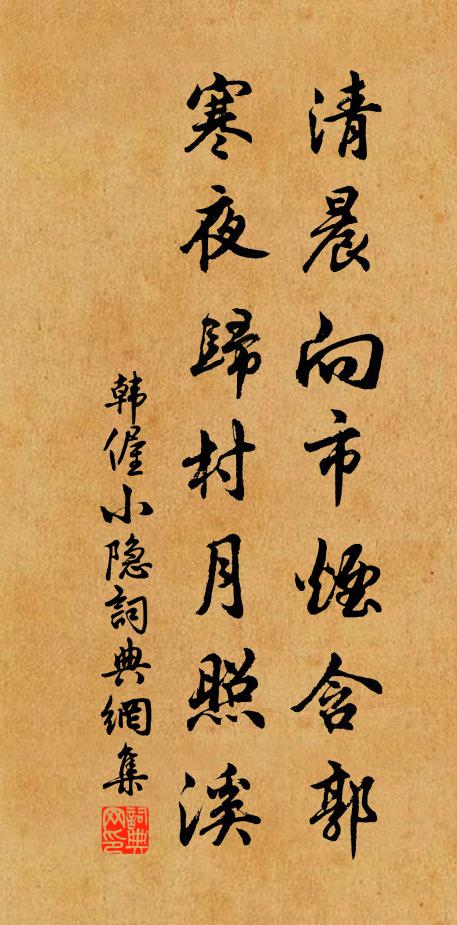 清晨向市煙含郭
寒夜歸村月照溪
韩偓小隐詞典網集
詞典网印